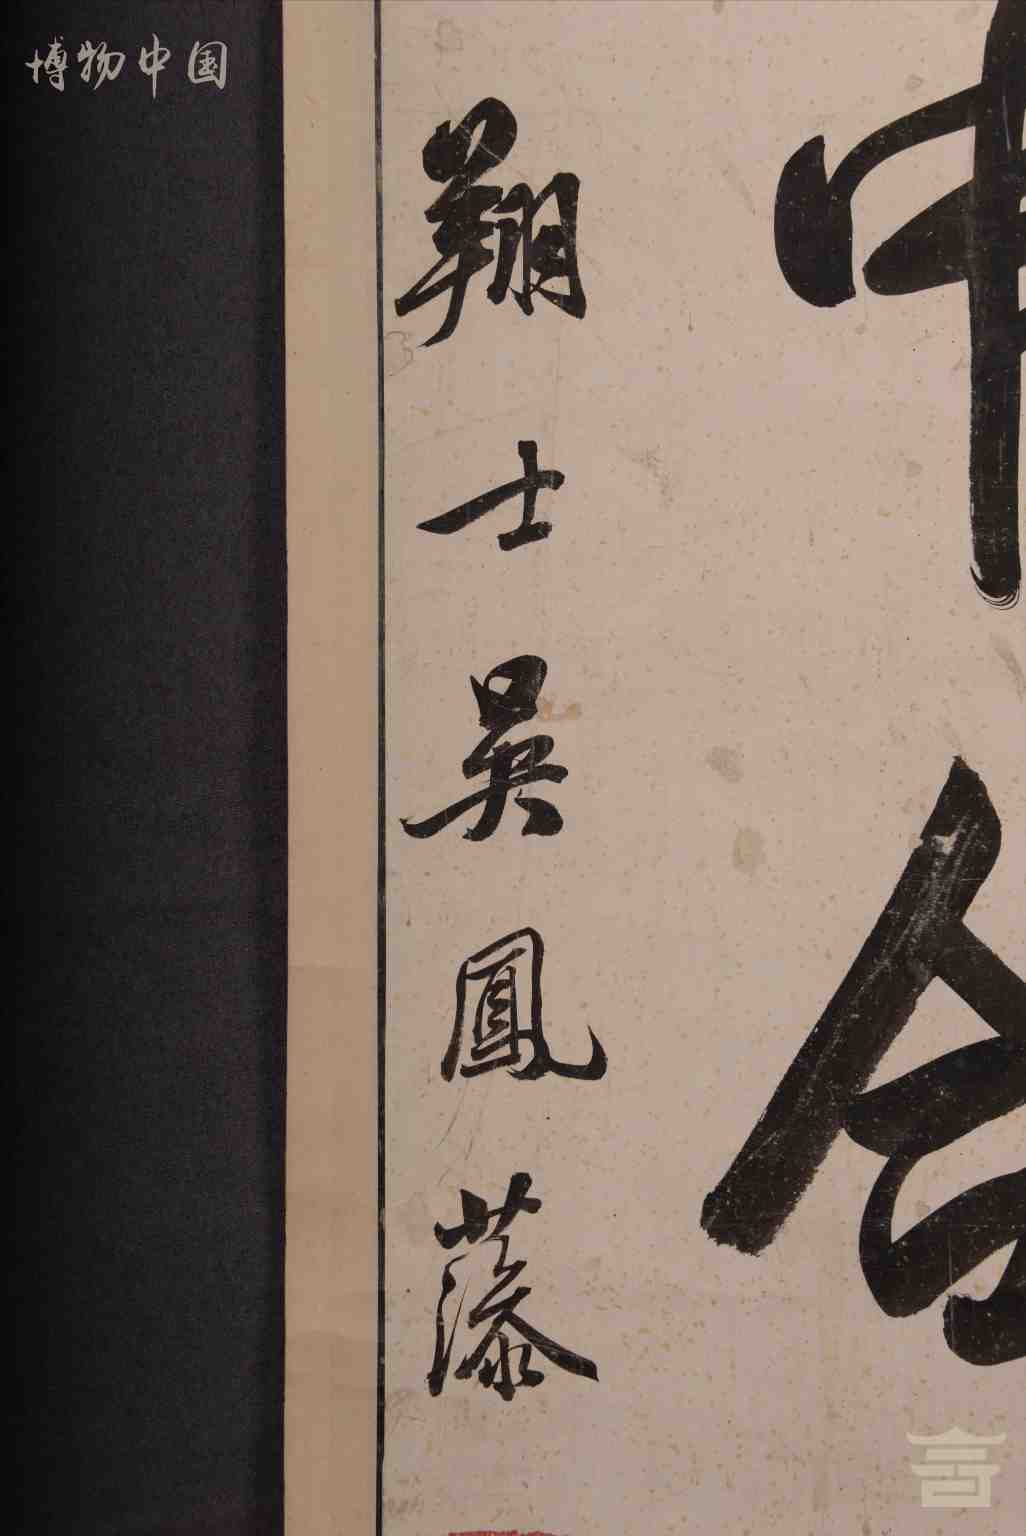 博物中国
中
翔士吳鳳藻